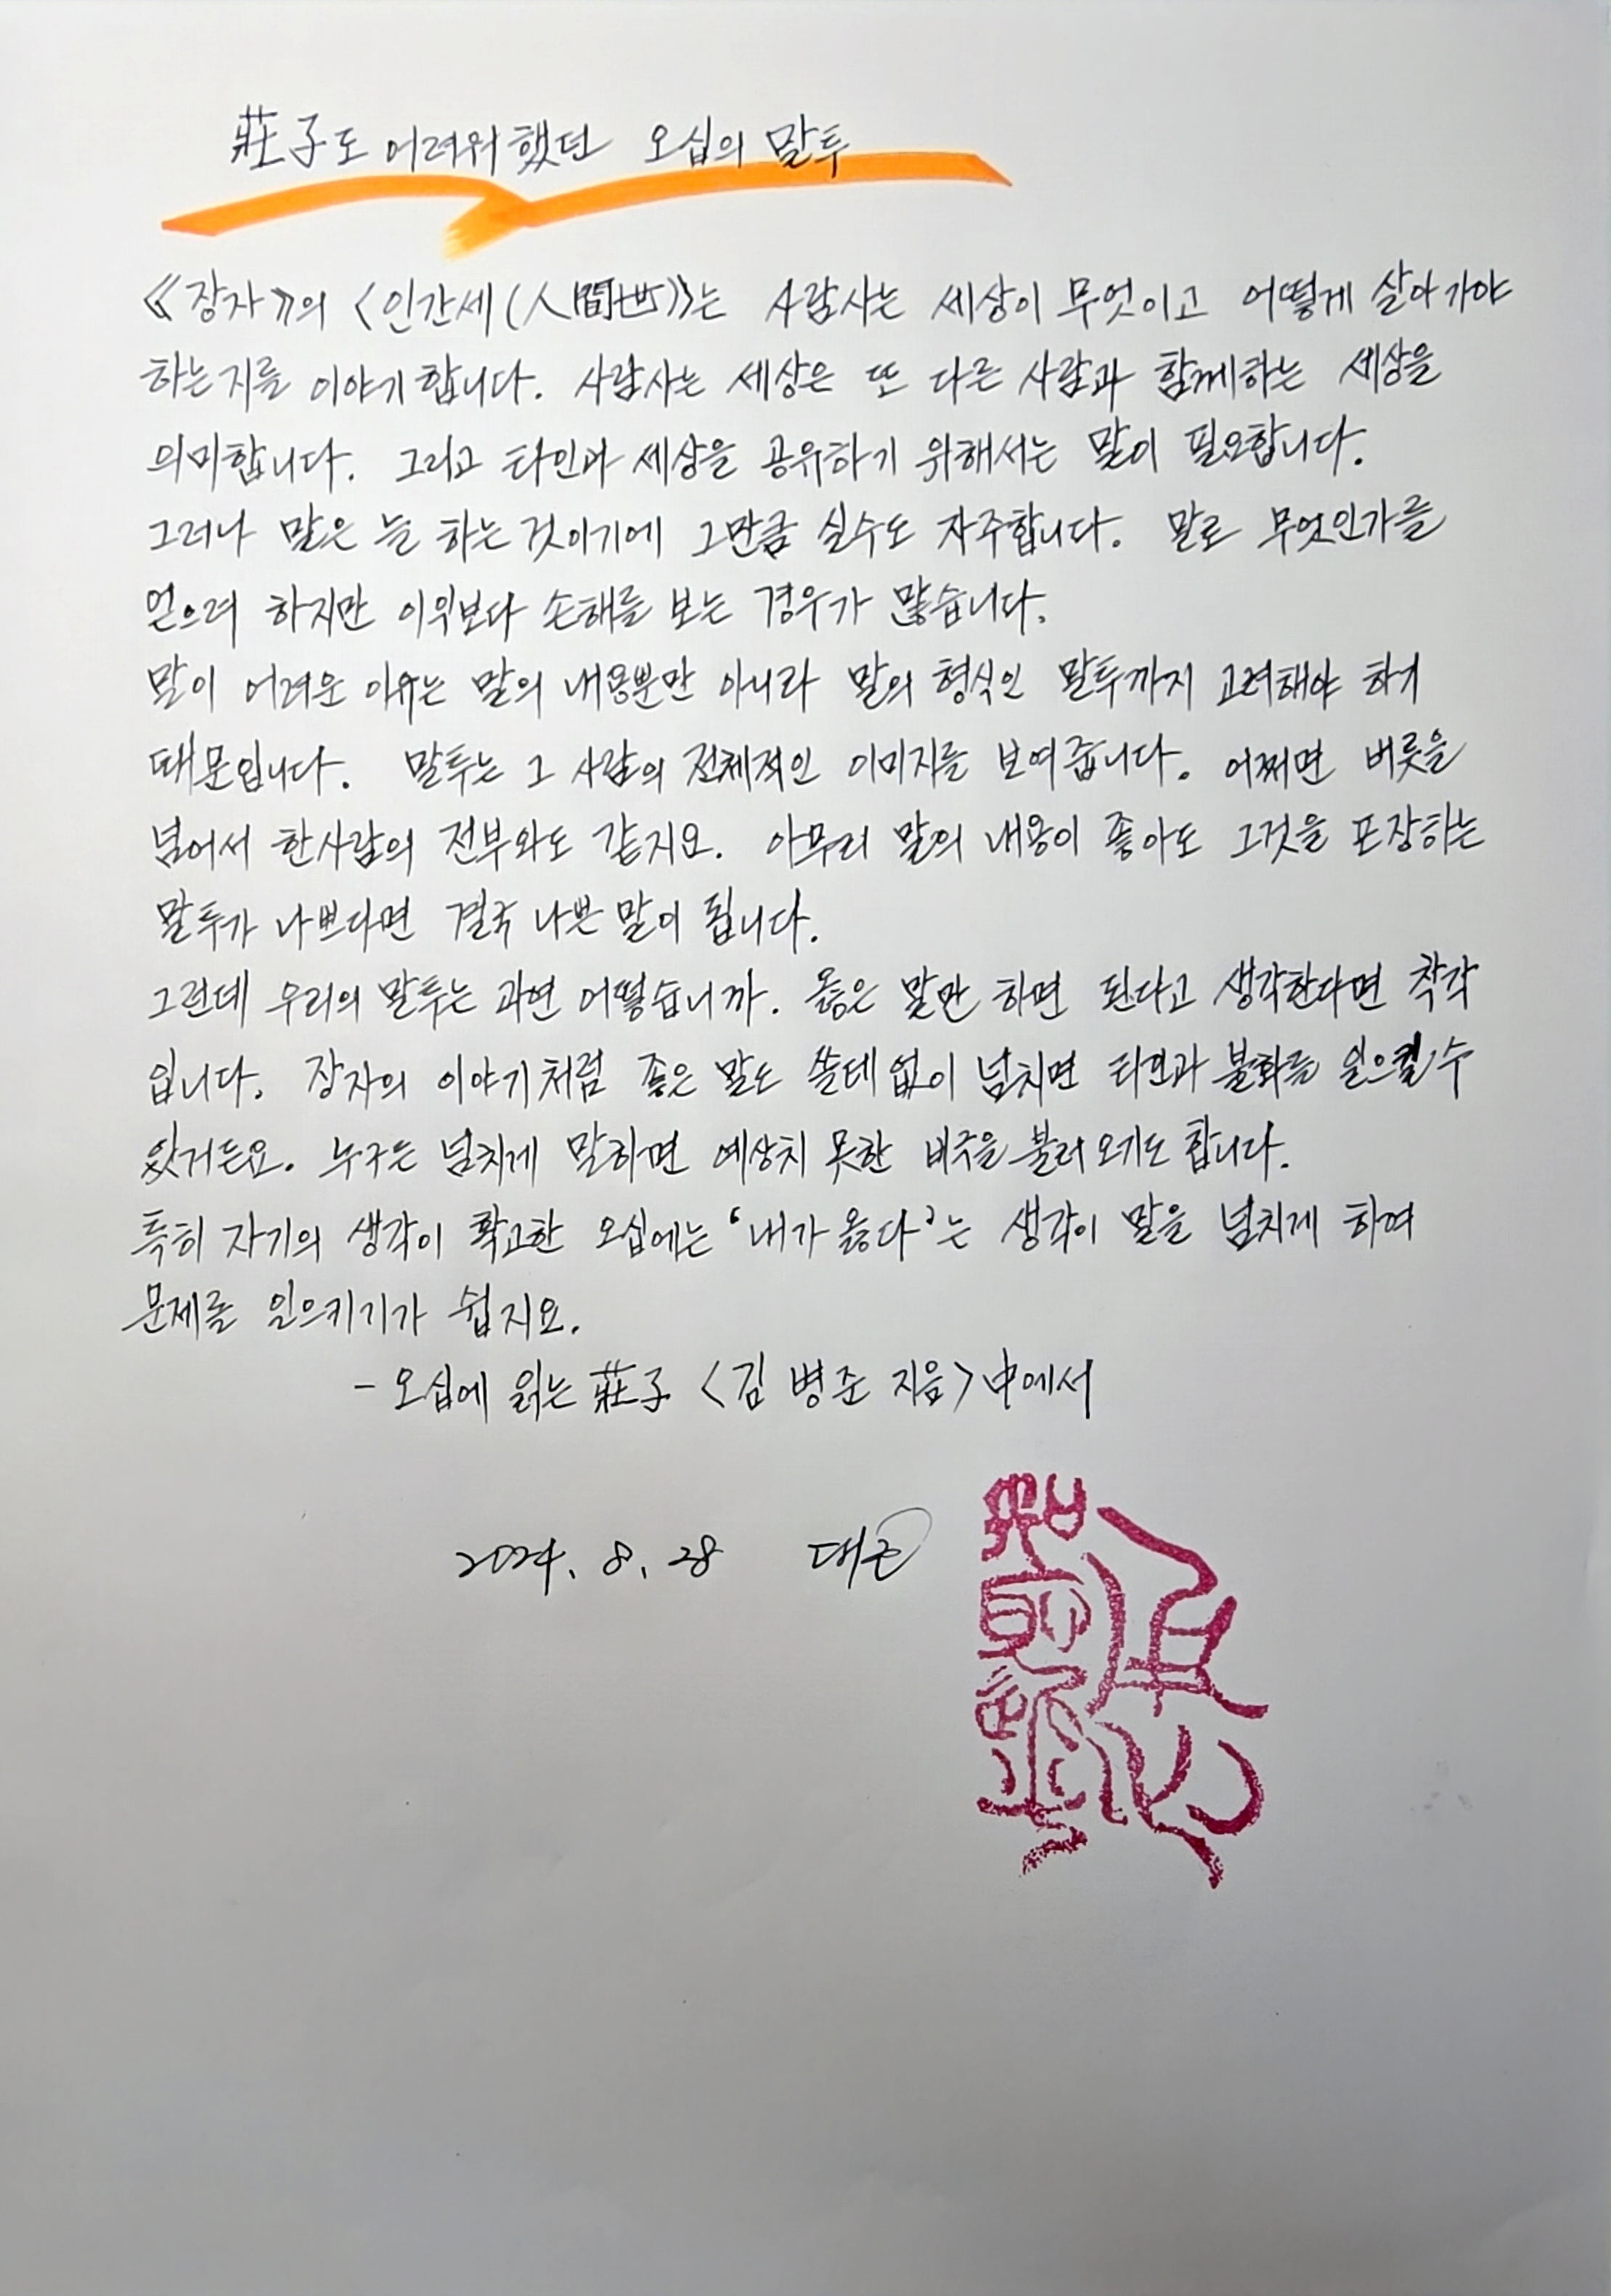 莊子도 어려워했던 오십의 말투
《장자》의 〈인간세(人間世)〉는 사람사는 세상이 무엇이고 어떻게 살아가야
하는지를 이야기합니다. 사람사는 세상은 또 다른 사람과 함께하는 세상을
의미합니다. 그리고 타인과 세상을 공유하기 위해서는 말이 필요합니다.
그러나 말은 늘 하는 것이기에 그만큼 실수도 자주합니다. 말로 무엇인가를
얻으려 하지만 이익보다 손해를 보는 경우가 많습니다.
말이 어려운 이유는 말의 내용뿐만 아니라 말의 형식인 말투까지 고려해야 하기
때문입니다. 말투는 그 사람의 전체적인 이미지를 보여줍니다. 어쩌면 버릇을
넘어서 한사람의 전부와도 같지요. 아무리 말의 내용이 좋아도 그것을 포장하는
말투가 나쁘다면 결국 나쁜 말이 됩니다.
그런데 우리의 말투는 과연 어떻습니까. 옳은 말만 하면 된다고 생각한다면 착각
입니다. 장자의 이야기처럼 좋은 말도 쓸데없이 넘치면 타인과 불화를 일으킬 수
있거든요. 누구는 넘치게 말하면 예상치 못한 비극을 불러오기도 합니다.
특히 자기의 생각이 확고한 오십에는 '내가 옳다'는 생각이 말을 넘치게 하여
문제를 일으키기가 쉽지요.
- 오십에 읽는 莊子 〈김병준 지음〉中에서
2024. 8. 28